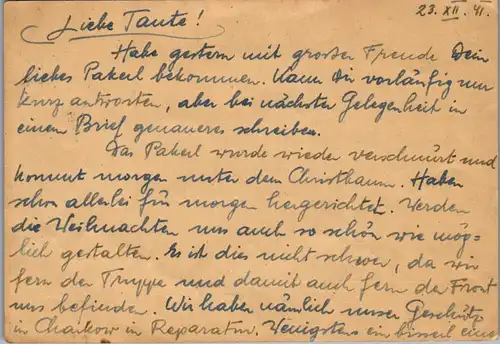 23. XII. 41.
Liebe Tante!
Habe gestern mit großer Freude Dein
liebes Pakerl bekommen. Kann Dir vorläufig nur
kurz antworten, aber bei nächster Gelegenheit in
einem Brief genaueres schreiben.
Das Pakerl wurde wieder verschnürt und
kommt morgen unter den Christbaum. Haben
schon allerlei für morgen hergerichtet. Werden
die Weihnachten uns auch so schön wie mög-
lich gestalten. Es ist dies nicht schwer, da wir
fern der Truppe und damit auch fern der Front
uns befinden. Wir haben nämlich unser Geschütz
in Charkow in Reparatur. Wenigstens ein bisserl eine